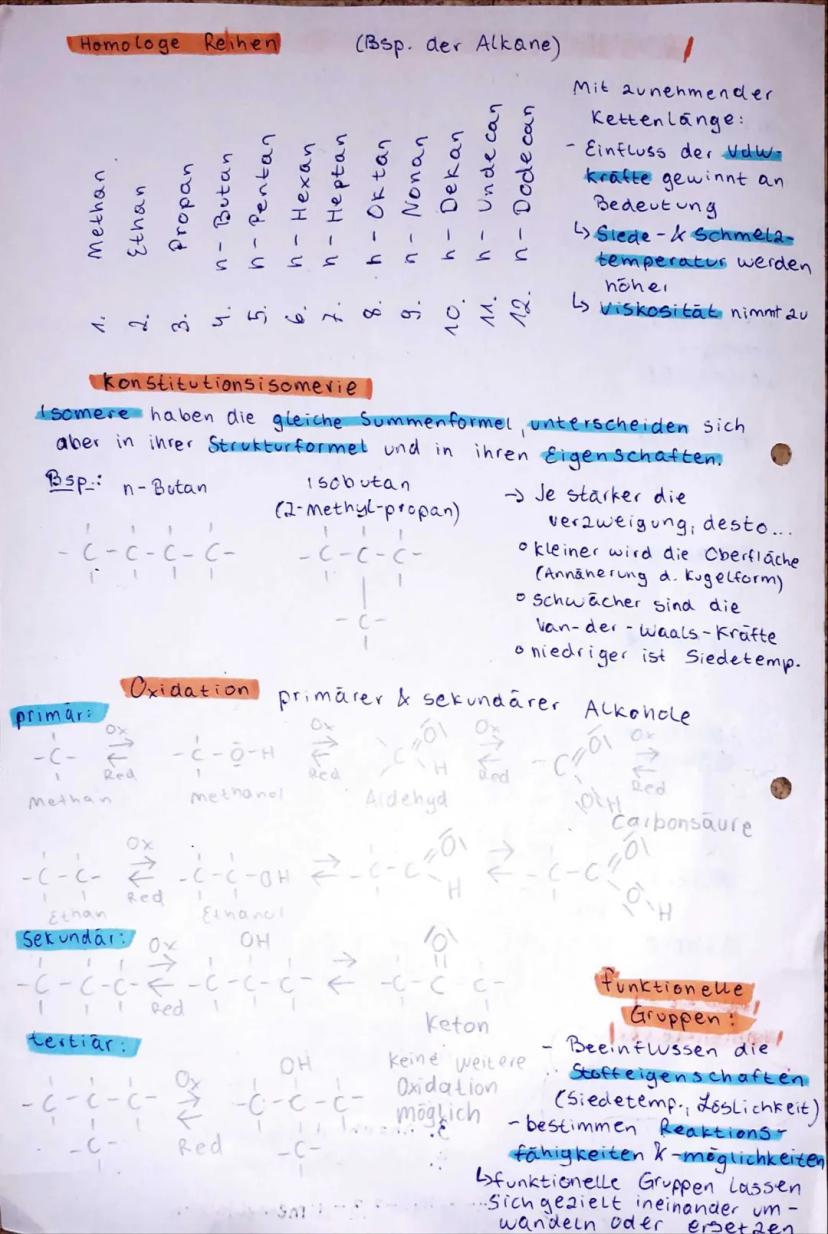 Homologe Reihen (Bsp. der Alkane)
1. Methan
2. Ethan
3. Propan
4. n-Butan
5. n-Pentan
6. n-Hexan
7. n-Heptan
8. n-Oktan
9. n-Nonan
10. n-Dekan
11. n-Undecan
12. n-Dodecan
Mit zunehmender
Kettenlänge:
- Einfluss der VdW-
kräfte gewinnt an
Bedeutung
↳ Siede- & Schmelz-
temperatur werden
höher
↳ Viskosität nimmt zu
Konstitutionsisomerie
Isomere haben die gleiche Summenformel, unterscheiden sich
aber in ihrer Strukturformel und in ihren Eigenschaften.
Bsp.: n-Butan
Isobutan
(2-Methyl-propan)
-C-C-C-C-
-C-C-C-
-C-
→ Je stärker die
verzweigung, desto...
° kleiner wird die Oberfläche
(Annäherung d. Kugelform)
° schwächer sind die
Van-der-Waals-Kräfte
° niedriger ist Siedetemp.
Oxidation primärer & sekundärer Alkohole
primär:
-C- Ox ⇌ Red -C-O-H Ox ⇌ Red C O H Ox ⇌ Red -C O OH Ox ⇌ Red
Methan Methanol Aldehyd Carbonsäure
-C-C- Ox ⇌ Red -C-C-OH ⇌ -C-C O H ⇌ -C-C O O H
Ethan Ethanol
Sekundär:
-C-C-C- Ox ⇌ Red OH -C-C-C- ⇌ O -C-C-C-
Keton
tertiär:
-C-C-C- -C- Ox ⇌ Red OH -C-C-C- -C-
keine weitere
Oxidation
möglich
funktionelle
Gruppen:
- Beeinflussen die
Stoffeigenschaften
(Siedetemp., Löslichkeit)
- bestimmen Reaktions-
fähigkeiten & -möglichkeiten
↳ funktionelle Gruppen lassen
sich gezielt ineinander um-
wandeln oder ersetzen